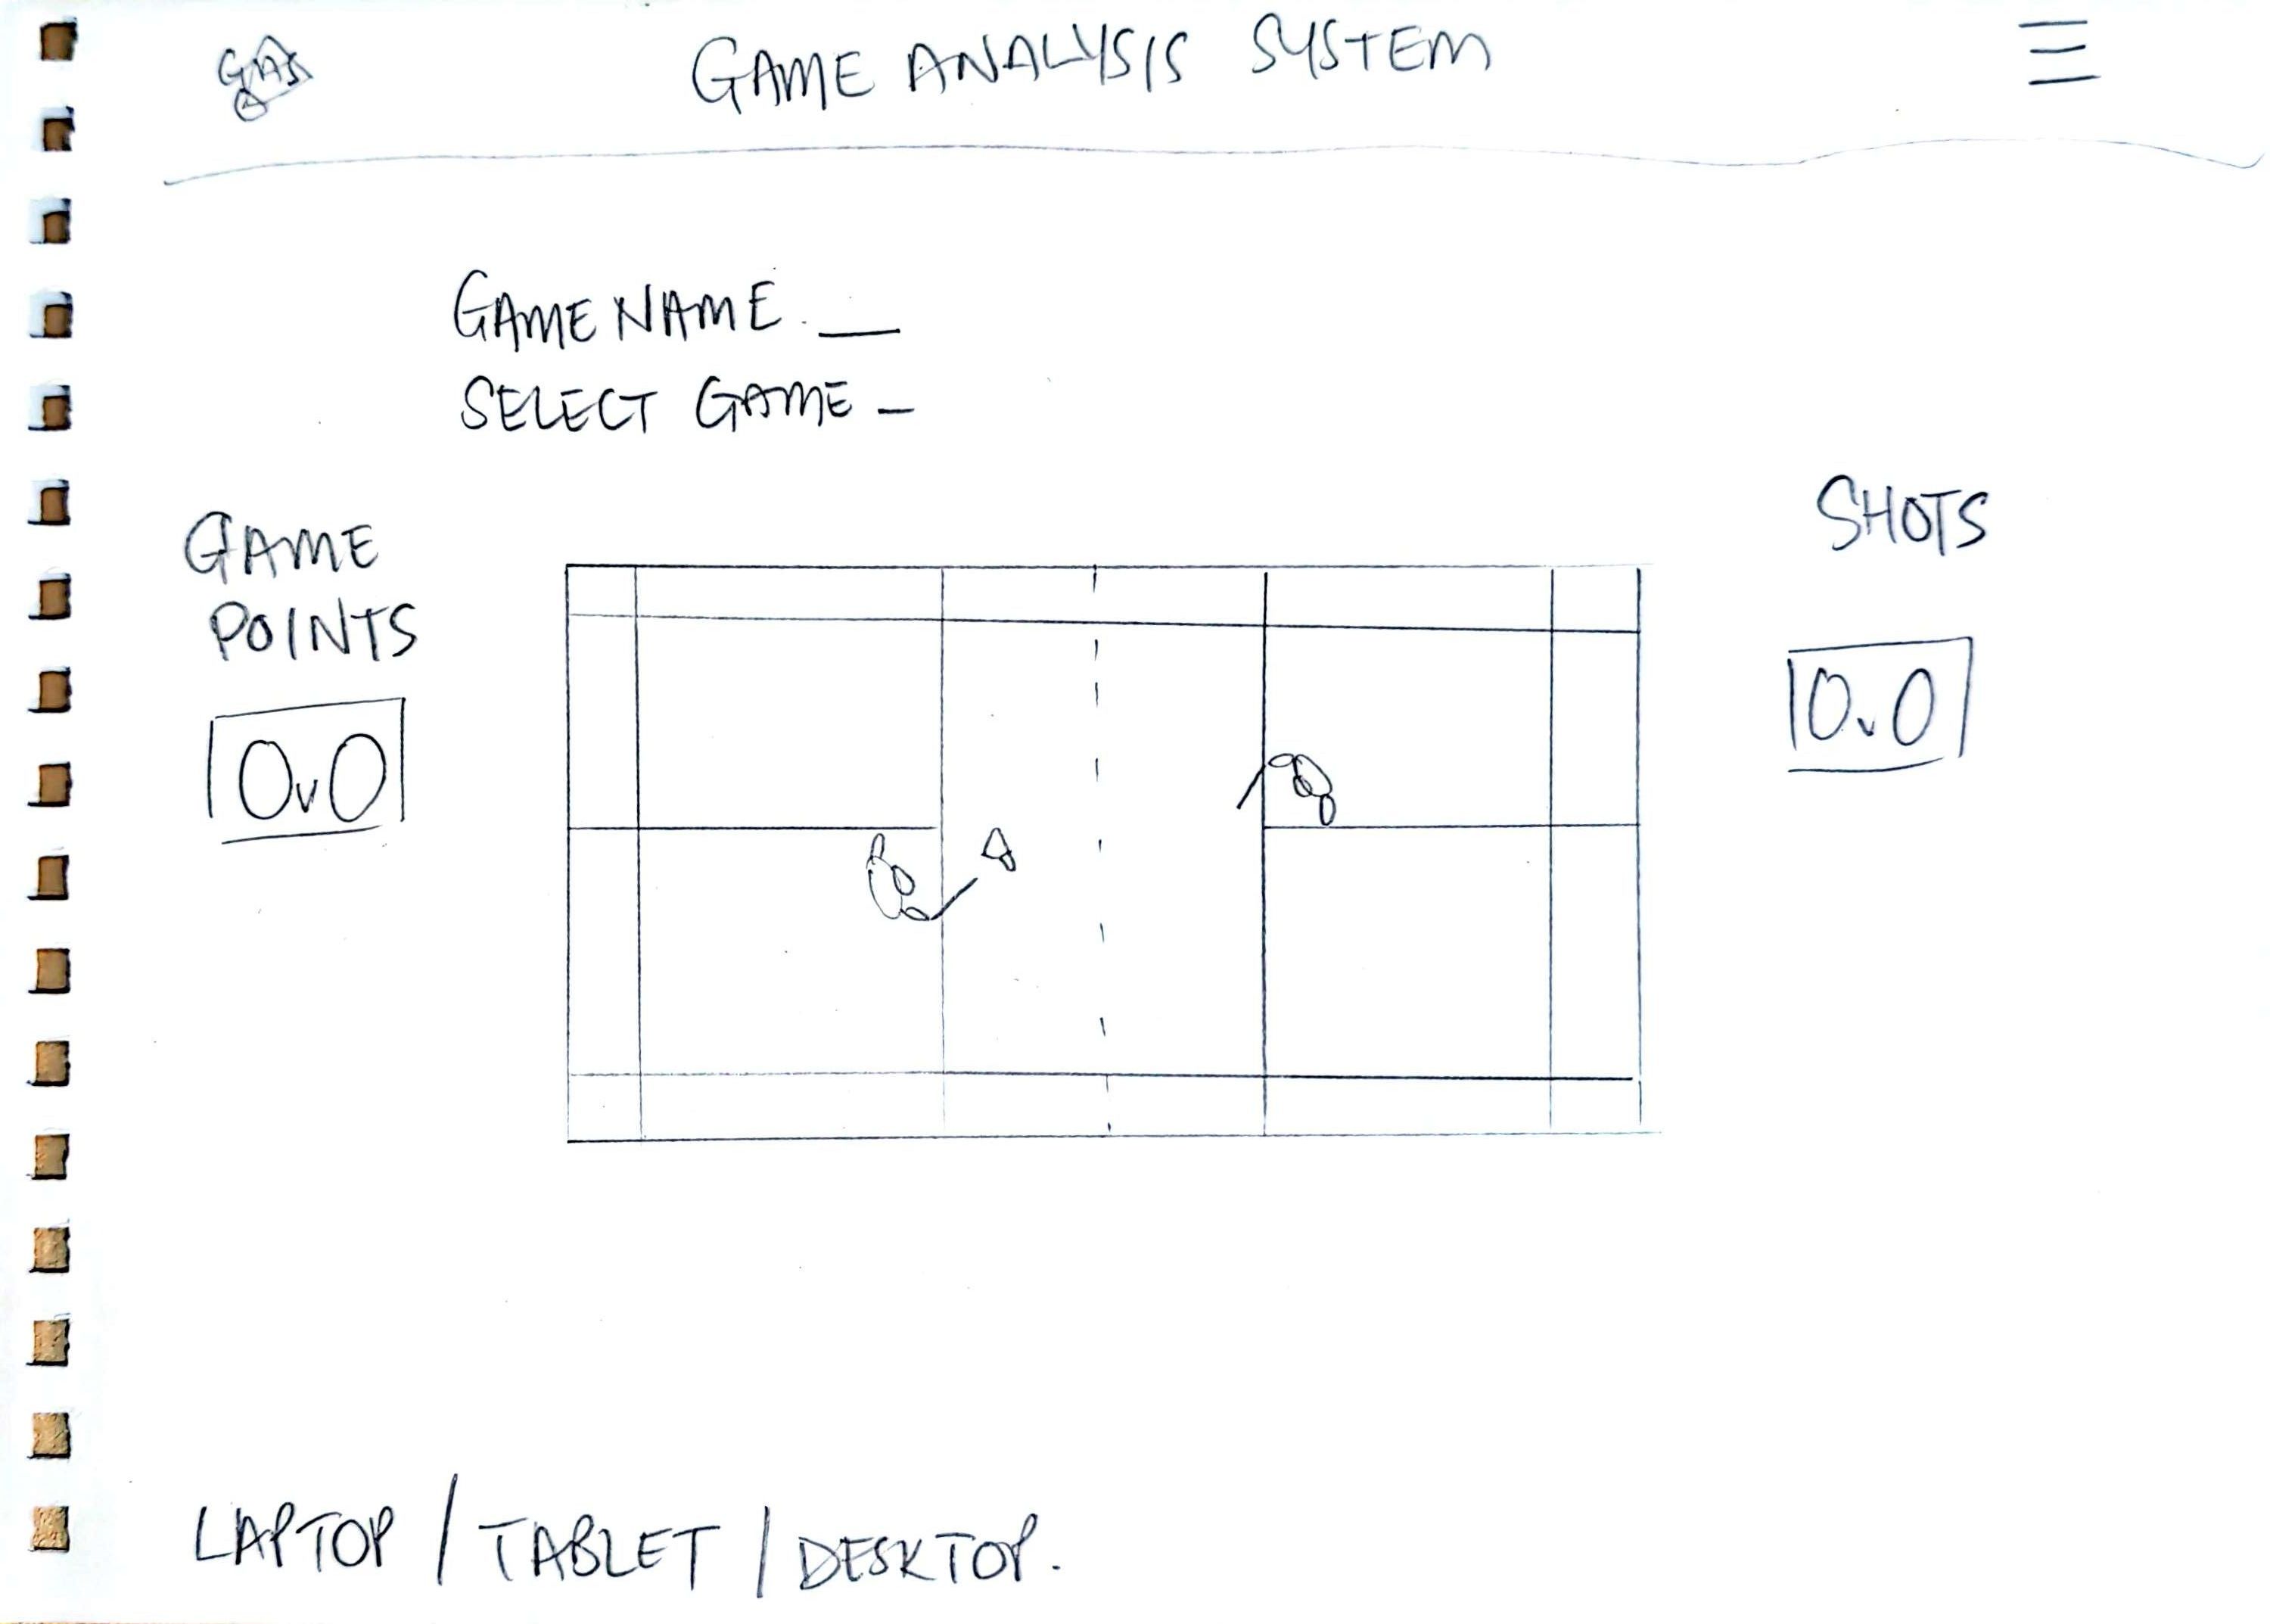 GAS
GAME ANALYSIS SYSTEM
GAME NAME. __
SELECT GAME -
GAME
POINTS
0v0
SHOTS
0v0
LAPTOP / TABLET / DESKTOP.